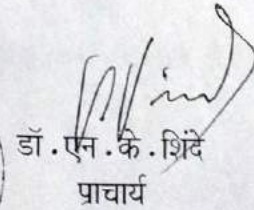 डॉ.एन.के.शिंदे
प्राचार्य